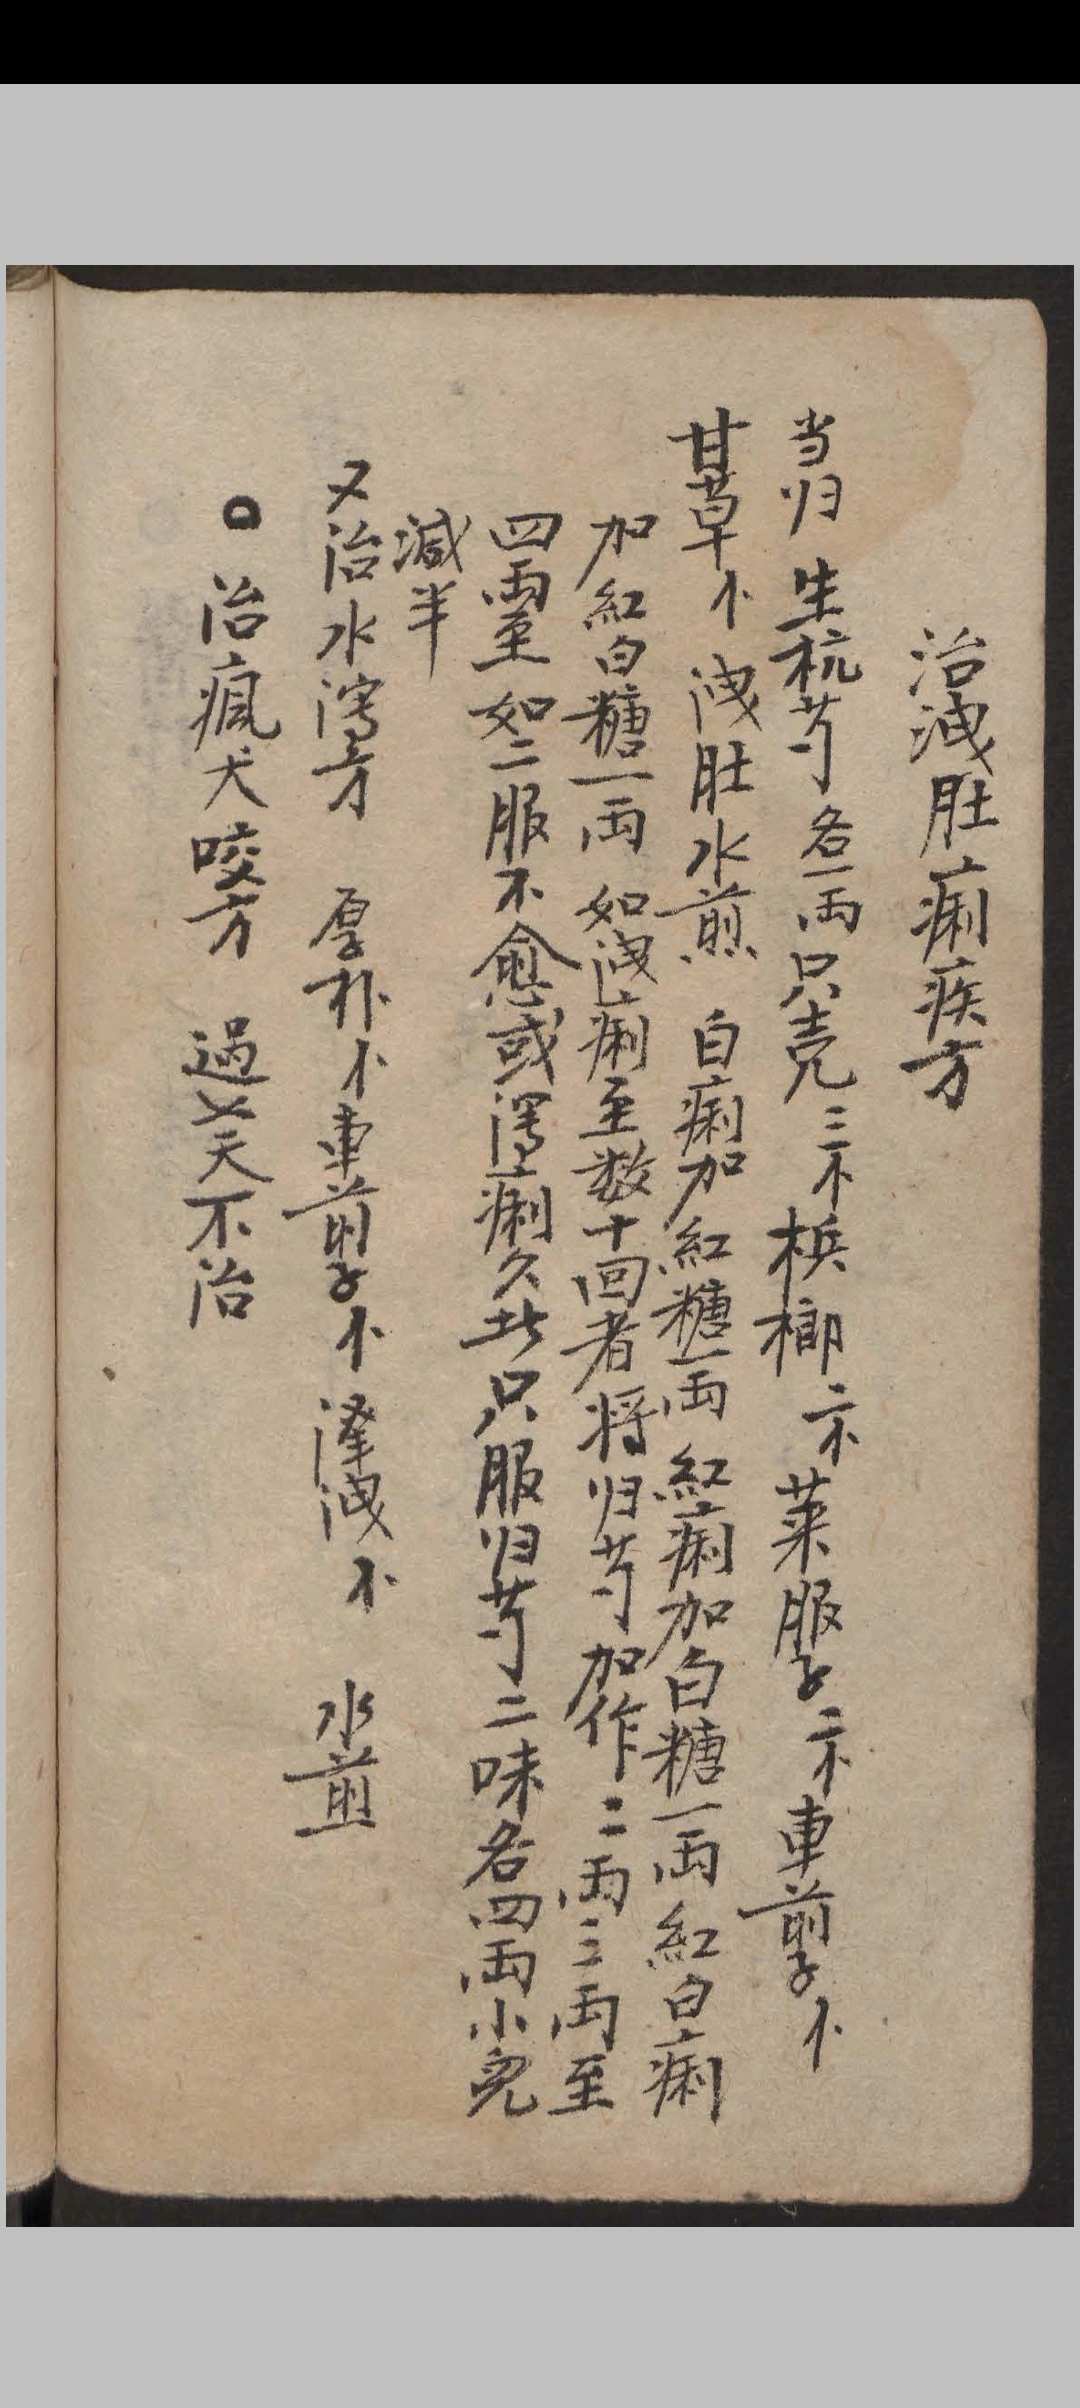 治洩肚痢疾方
当归 生杭芍各一両只壳三小梹榔二小莱服子二小車前子小
甘草小 洩肚水煎 白痢加紅糖一両 紅痢加白糖一両 紅白痢
加紅白糖一両 如洩痢至数十回者将归芍加作二両三両至
四両至 如二服不愈或瀉痢久此只服归芍二味各四両小兒
減半
又治水瀉方 厚朴小車前子小 澤洩小 水煎
治瘋犬咬方 過天不治